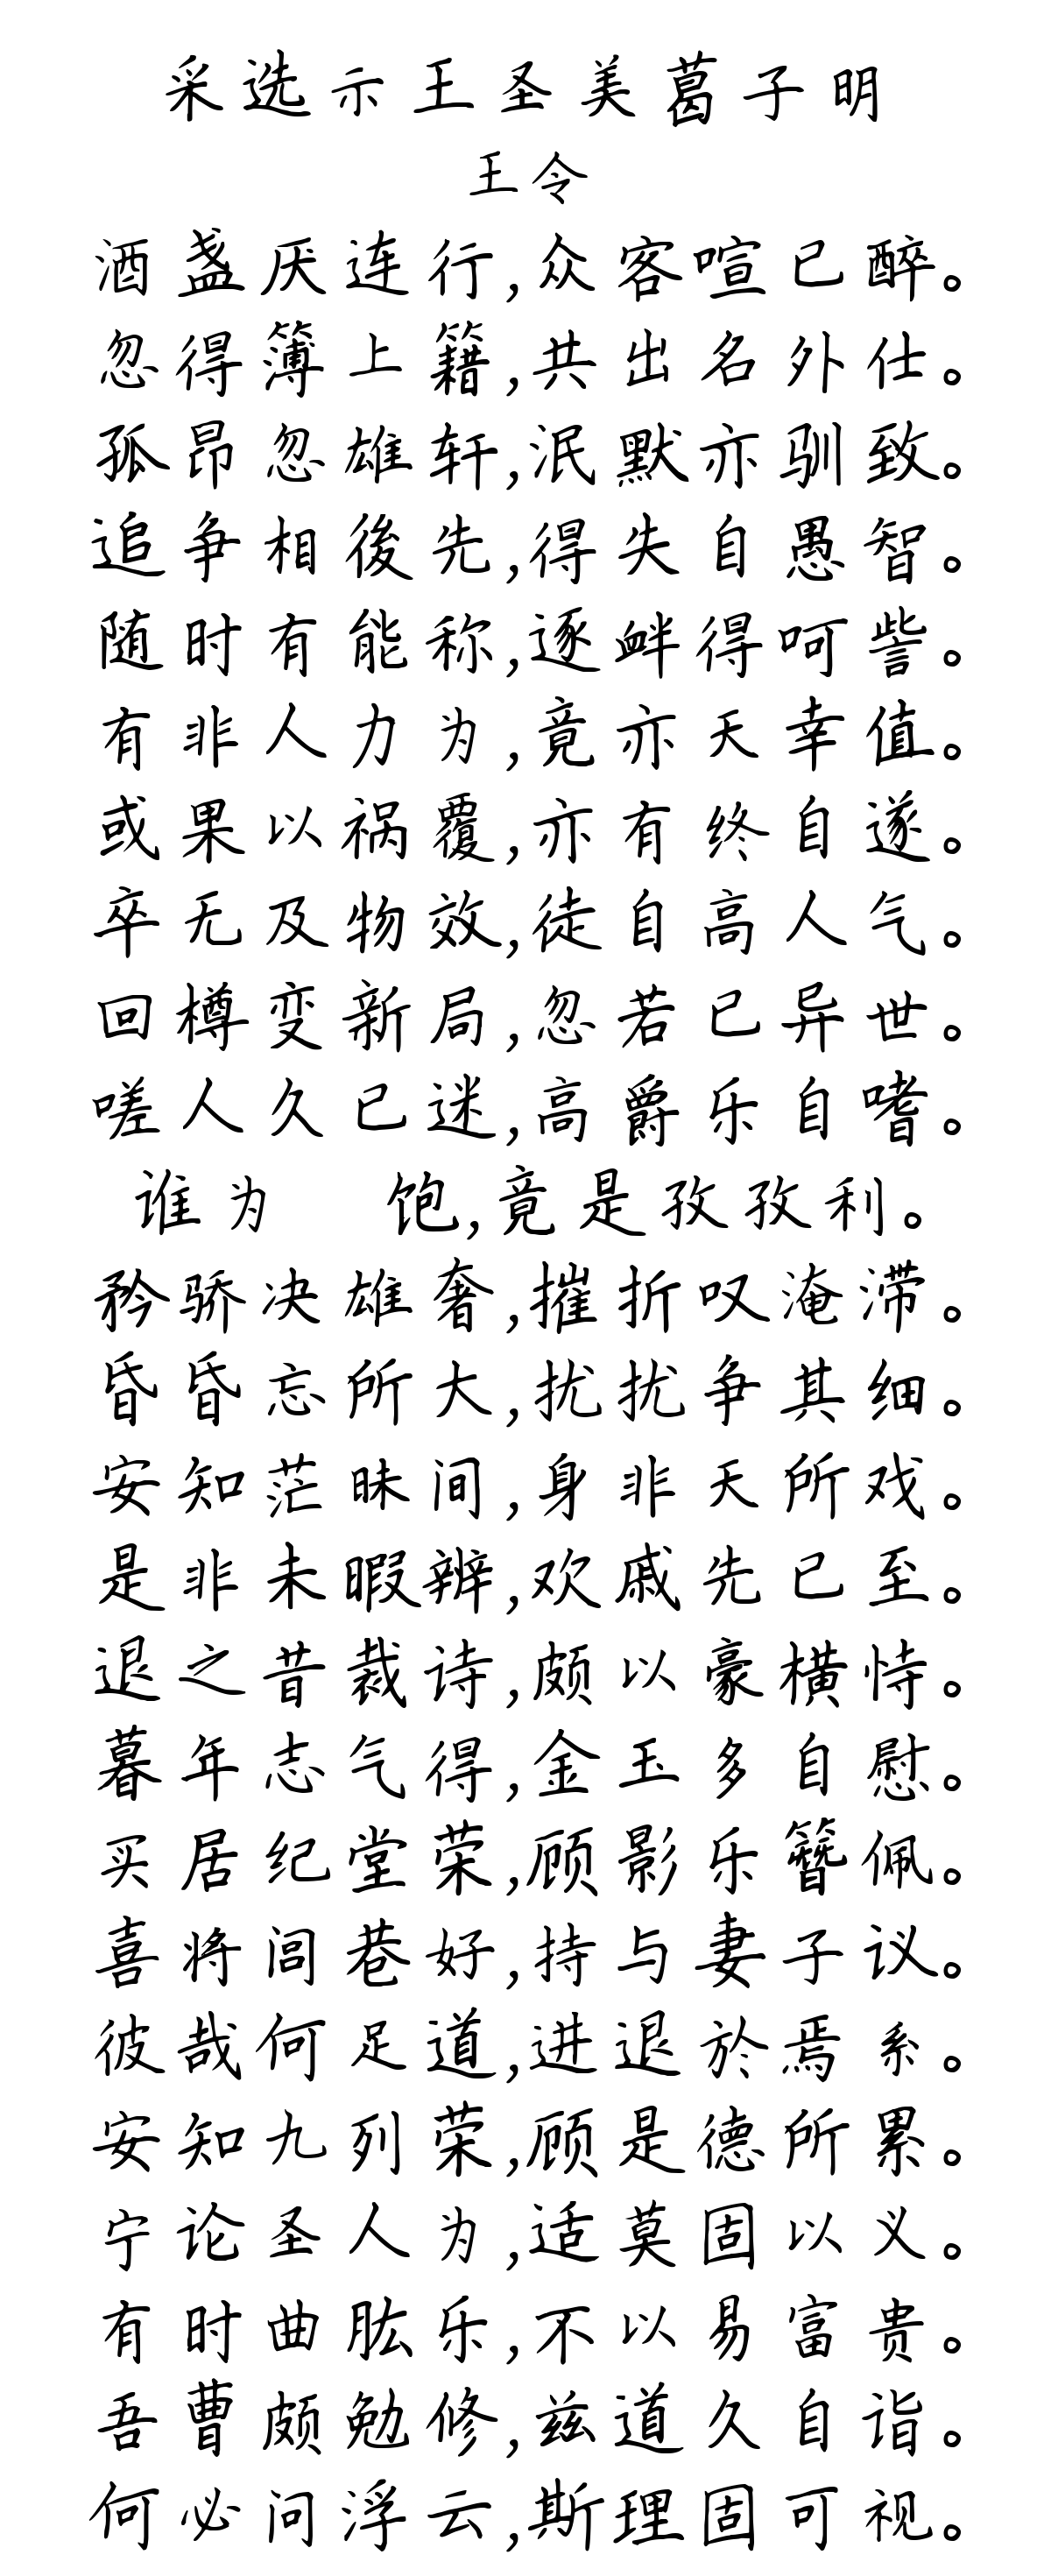 采选示王圣美葛子明
王令
酒盏厌连行,众客喧已醉。
忽得簿上籍,共出名外仕。
孤昂忽雄轩,泯默亦驯致。
追争相後先,得失自愚智。
随时有能称,逐衅得呵訾。
有非人力为,竟亦天幸值。
或果以祸覆,亦有终自遂。
卒无及物效,徒自高人气。
回樽变新局,忽若已异世。
嗟人久已迷,高爵乐自嗜。
谁为 饱,竟是孜孜利。
矜骄决雄奢,摧折叹淹滞。
昏昏忘所大,扰扰争其细。
安知茫昧间,身非天所戏。
是非未暇辨,欢戚先已至。
退之昔裁诗,颇以豪横恃。
暮年志气得,金玉多自慰。
买居纪堂荣,顾影乐簪佩。
喜将闾巷好,持与妻子议。
彼哉何足道,进退於焉系。
安知九列荣,顾是德所累。
宁论圣人为,适莫固以义。
有时曲肱乐,不以易富贵。
吾曹颇勉修,兹道久自诣。
何必问浮云,斯理固可视。